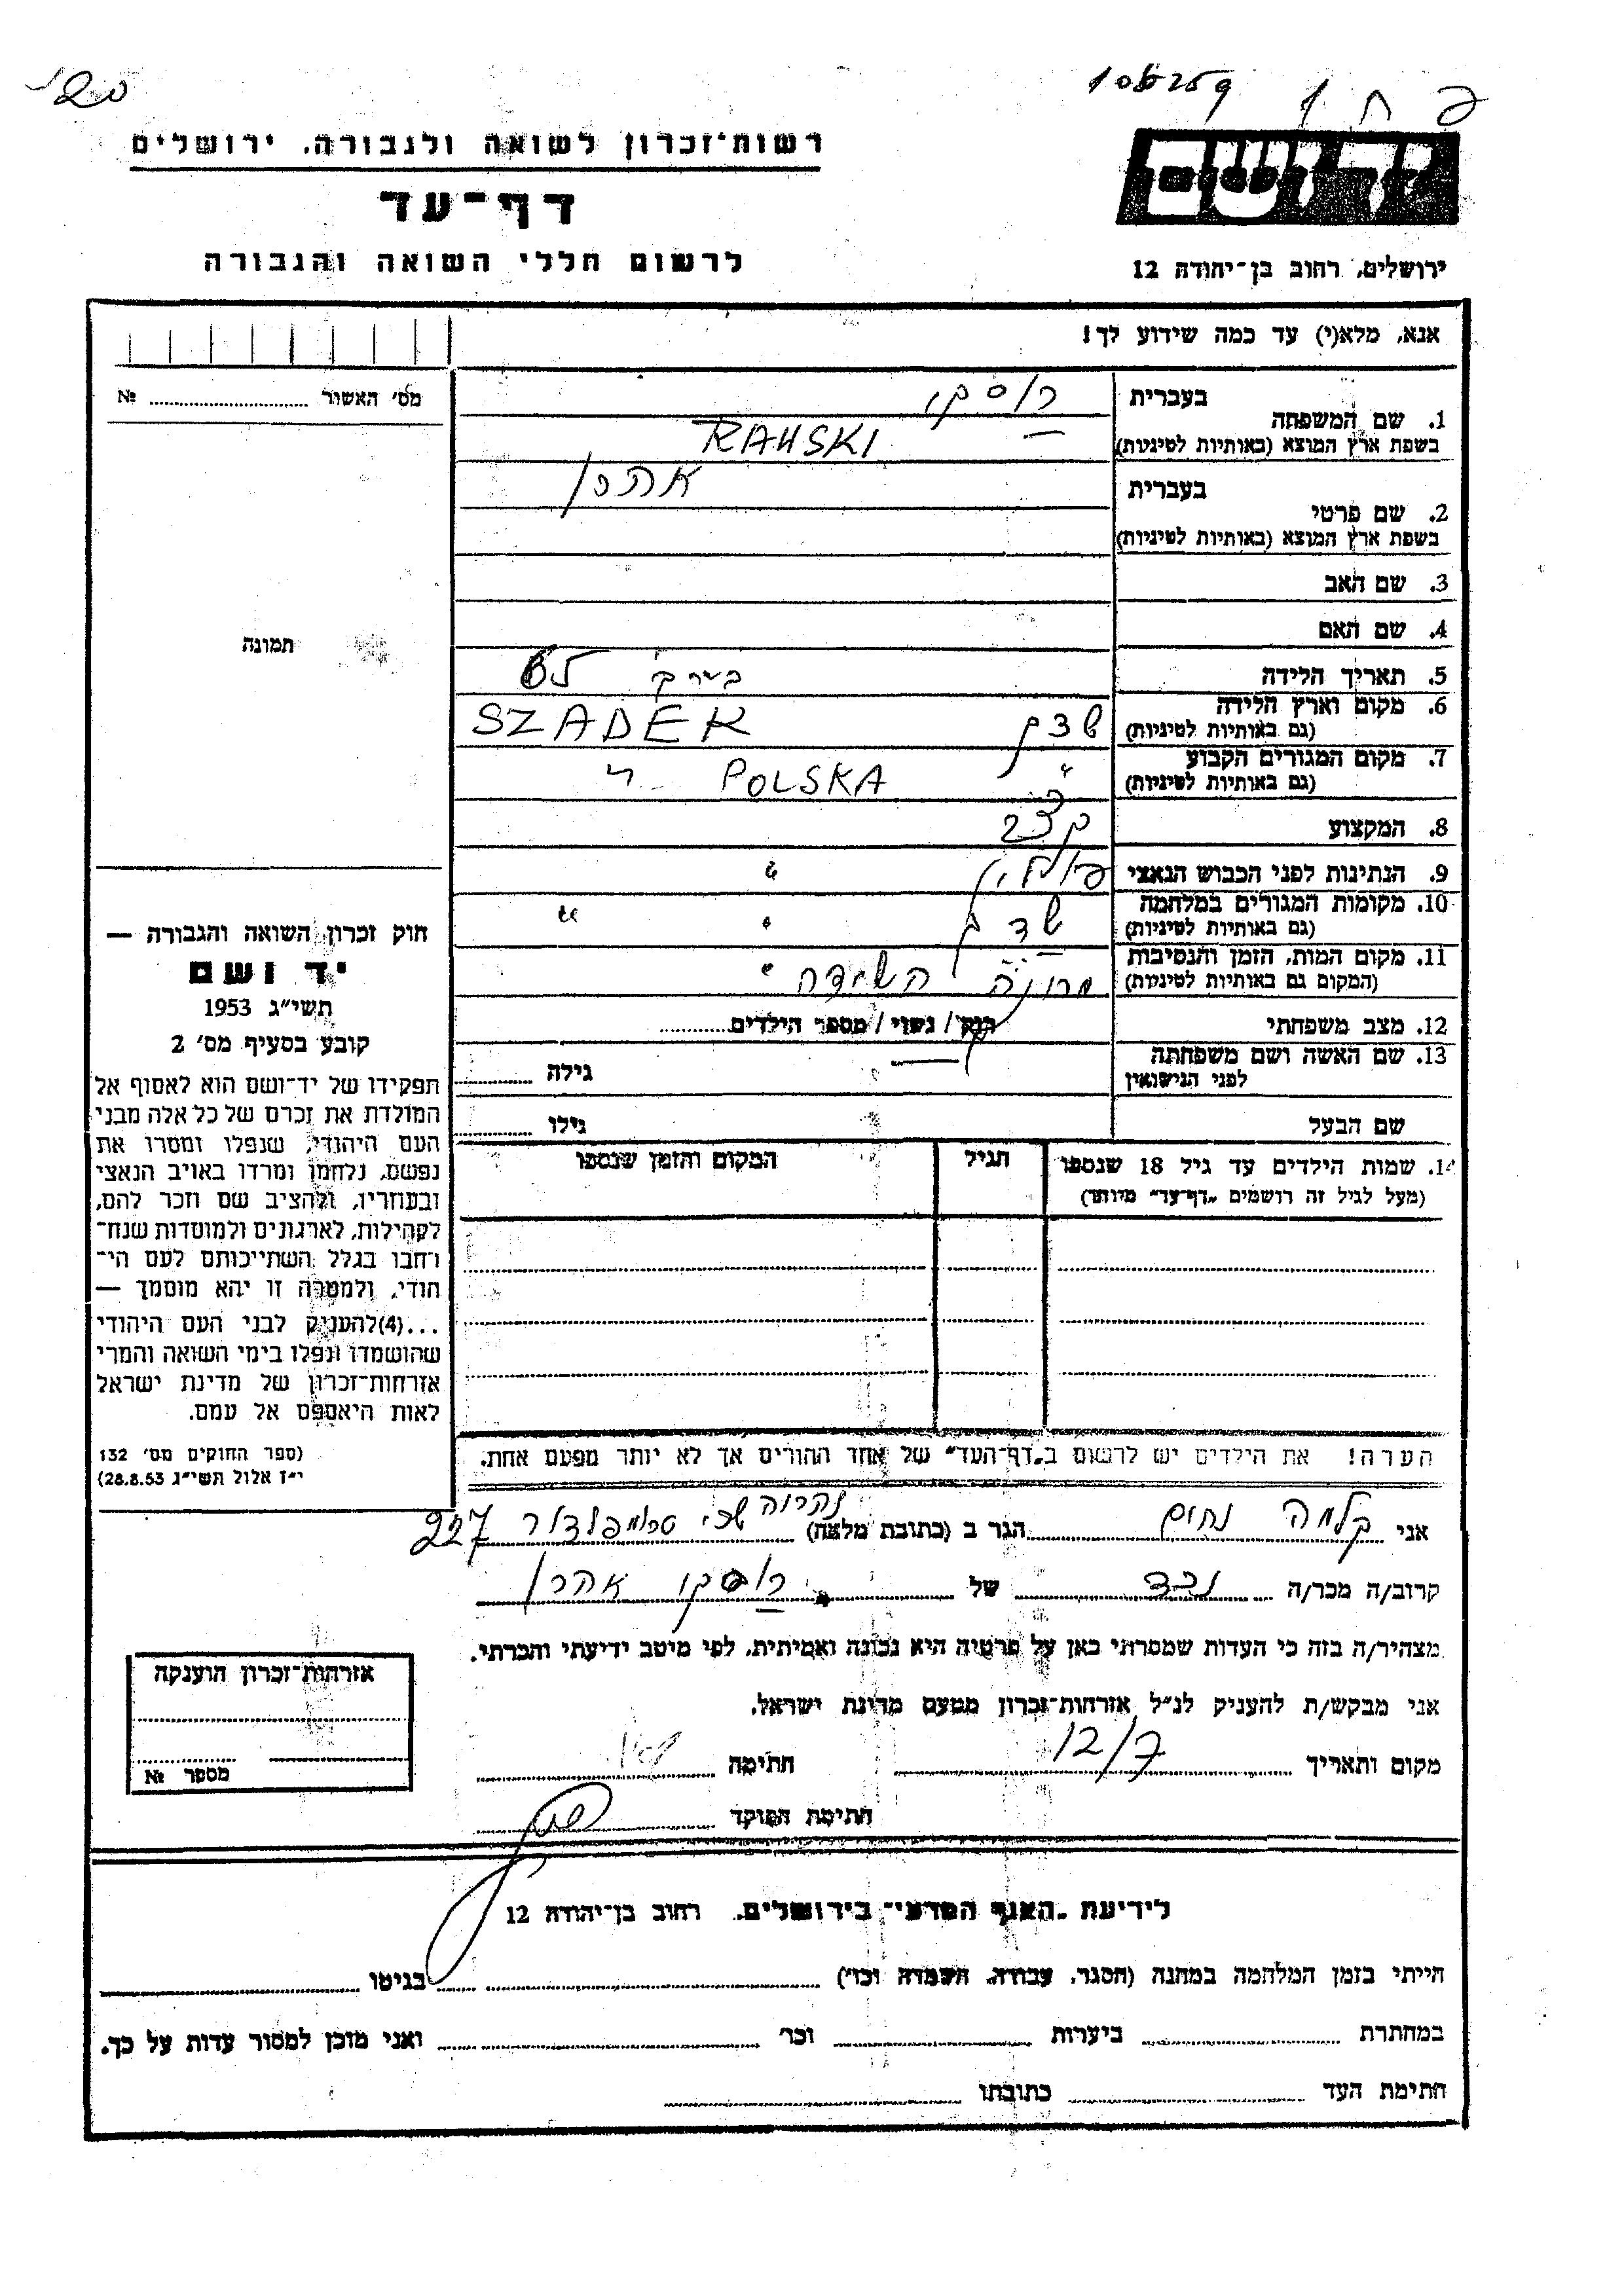 רשות־זכרון לשואה ולגבורה. ירושלים
דף־עד
לרשום חללי השואה והגבורה
יד ושם
ירושלים, רחוב בן־יהודה 12
אנא, מלא(י) עד כמה שידוע לך!
מס׳ האשור № 
תמונה
1. שם המשפחה
בעברית
רוסקי
בשפת ארץ המוצא (באותיות לטיניות)
RAUSKI
2. שם פרטי
בעברית
אהרן
בשפת ארץ המוצא (באותיות לטיניות)
3. שם האב
4. שם האם
5. תאריך הלידה
6. מקום וארץ הלידה
(גם באותיות לטיניות)
שדק SZADEK
7. מקום המגורים הקבוע
(גם באותיות לטיניות)
" POLSKA
8. המקצוע
קצב
9. הנתינות לפני הכבוש הנאצי
פולין
10. מקומות המגורים במלחמה
(גם באותיות לטיניות)
שדק
11. מקום המות, הזמן והנסיבות
(המקום גם באותיות לטיניות)
השמדה
12. מצב משפחתי
רוק / נשוי / מספר הילדים
13. שם האשה ושם משפחתה
לפני הנישואין
גילה
שם הבעל
גילו
14. שמות הילדים עד גיל 18 שנספו
(מעל לגיל זה רושמים "דף־עד" מיוחד)
הגיל
המקום והזמן שנספו
הערה! את הילדים יש לרשום ב"דף־העד" של אחד ההורים אך לא יותר מפעם אחת.
חוק זכרון השואה והגבורה —
יד ושם
תשי״ג 1953
קובע בסעיף מס׳ 2
תפקידו של יד־ושם הוא לאסוף אל
המולדת את זכרם של כל אלה מבני
העם היהודי, שנפלו ומסרו את
נפשם, נלחמו ומרדו באויב הנאצי
ובעוזריו, ולהציב שם וזכר להם,
לקהילות, לארגונים ולמוסדות שנח־
רבו בגלל השתייכותם לעם הי־
הודי, ולמטרה זו יהא מוסמך —
...(4)להעניק לבני העם היהודי
שהושמדו ונפלו בימי השואה והמרי
אזרחות־זכרון של מדינת ישראל
לאות היאספם אל עמם.
(ספר החוקים מס׳ 132
י״ז אלול תשי״ג 28.8.53)
אני קלמה נחום הגר ב (כתובת מלאה) נהריה שכ׳ טרומפלדור 227
קרוב/ה מכר/ה נכד של רוסקי אהרן
מצהיר/ה בזה כי העדות שמסרתי כאן על פרטיה היא נכונה ואמיתית, לפי מיטב ידיעתי והכרתי.
אני מבקש/ת להעניק לנ״ל אזרחות־זכרון מטעם מדינת ישראל.
מקום ותאריך 12/7 חתימה
חתימת הפוקד
אזרחות־זכרון הוענקה
מספר №
לידיעת "האגף המדעי" בירושלים, רחוב בן־יהודה 12
הייתי בזמן המלחמה במחנה (הסגר, עבודה, השמדה וכו׳) בגיטו
במחתרת ביערות וכו׳ ואני מוכן למסור עדות על כך.
חתימת העד כתובתו